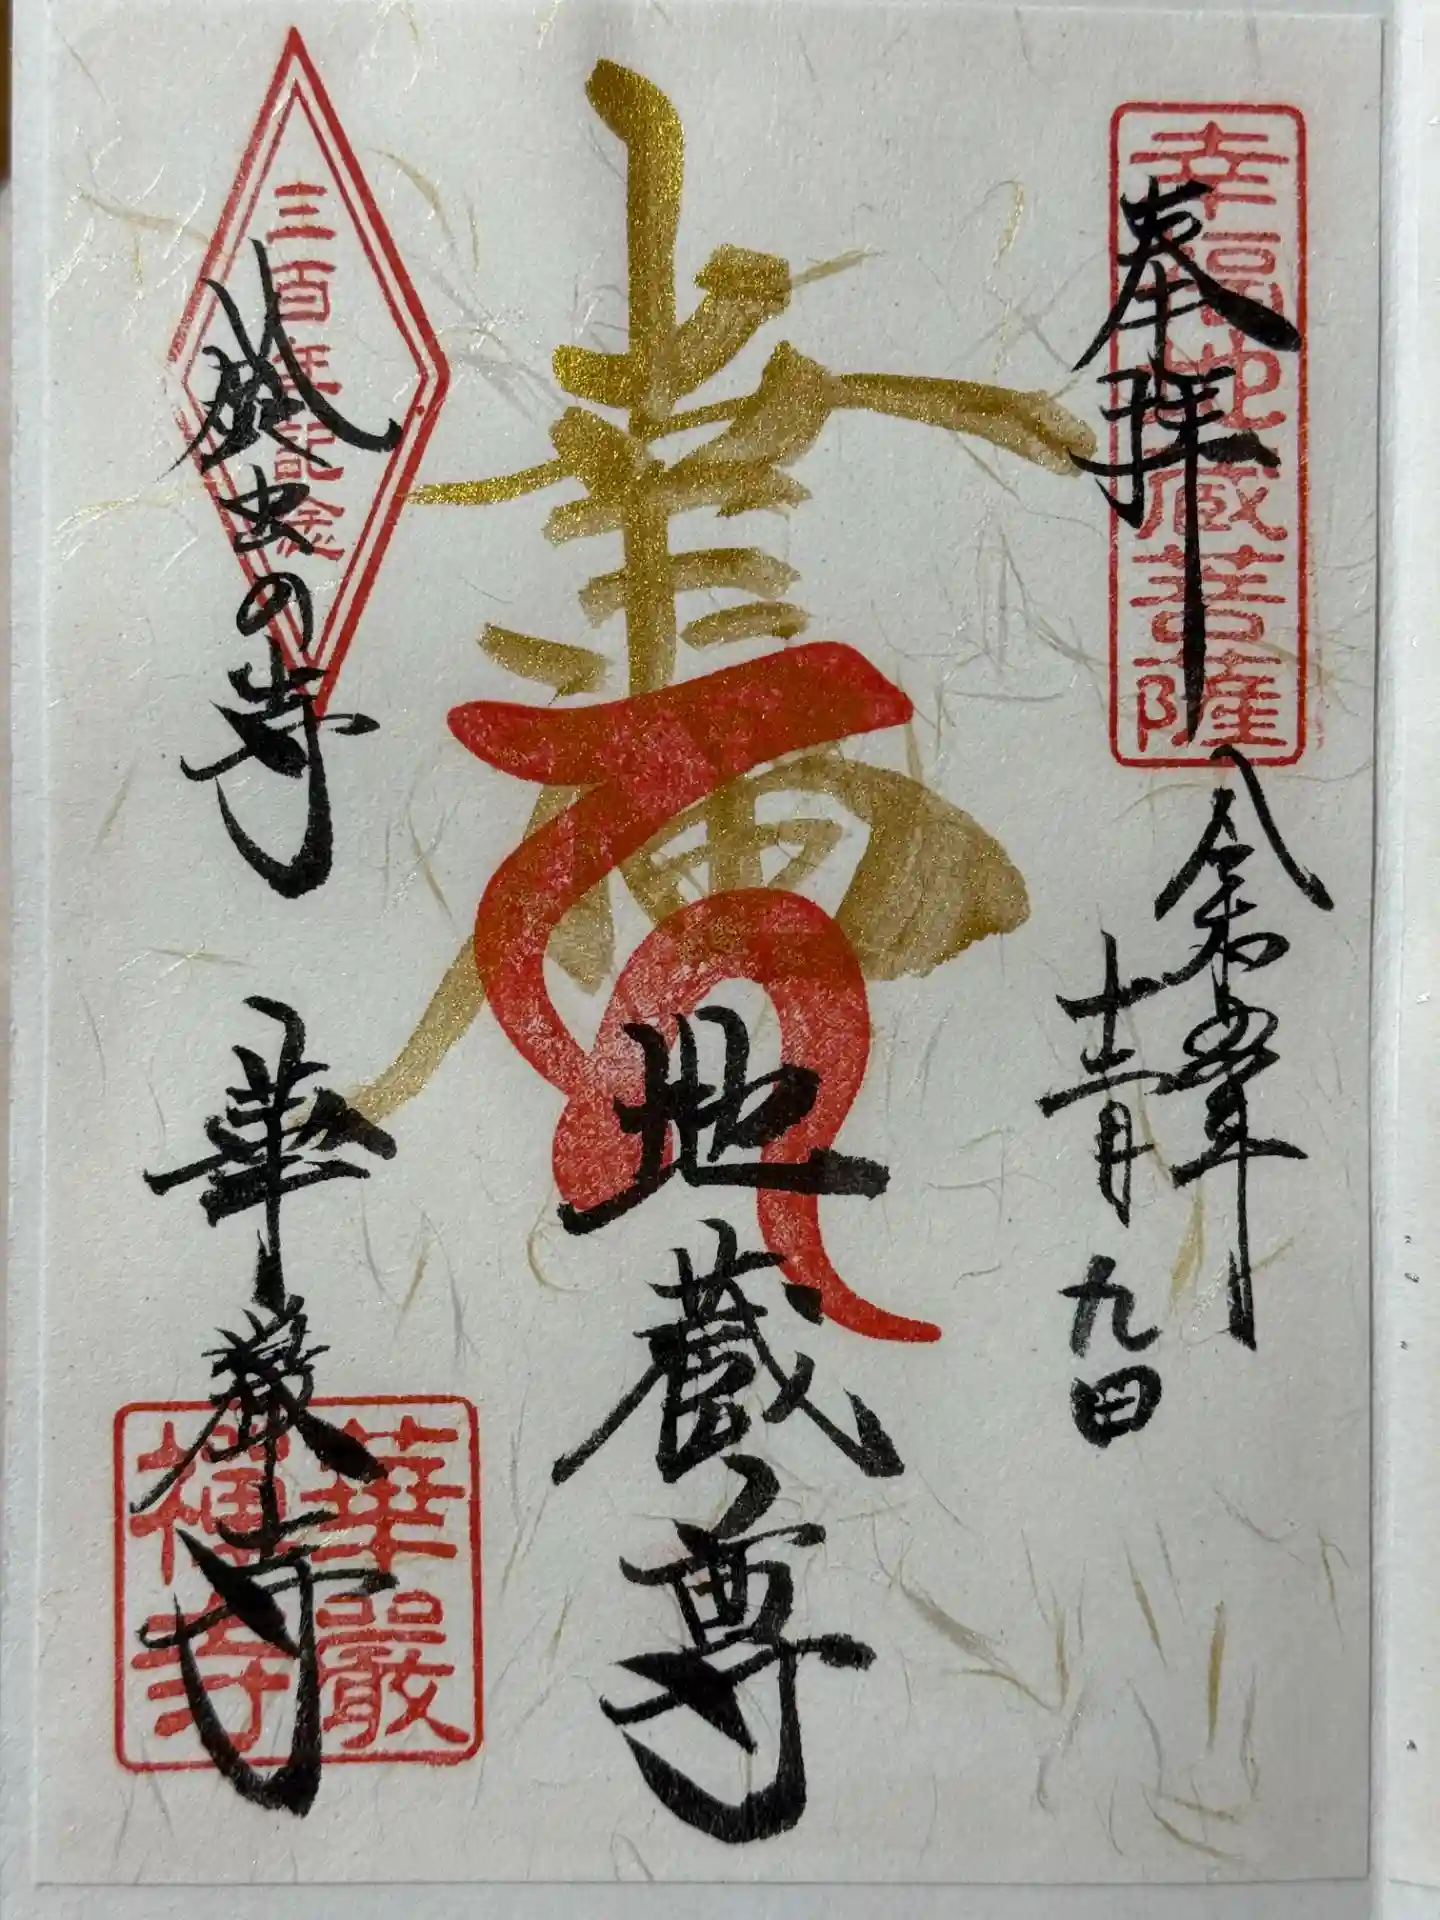 奉拝
幸福地蔵菩薩
令和五年
十二月九日
慶
地蔵尊
三百年記念
鈴虫の寺
華厳寺
華嚴禅寺